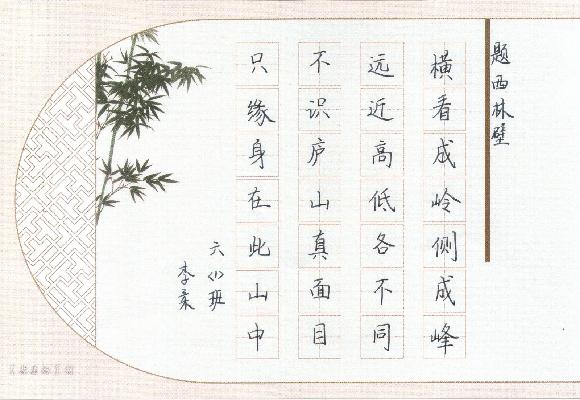 题西林壁
横看成岭侧成峰
远近高低各不同
不识庐山真面目
只缘身在此山中
六班
李